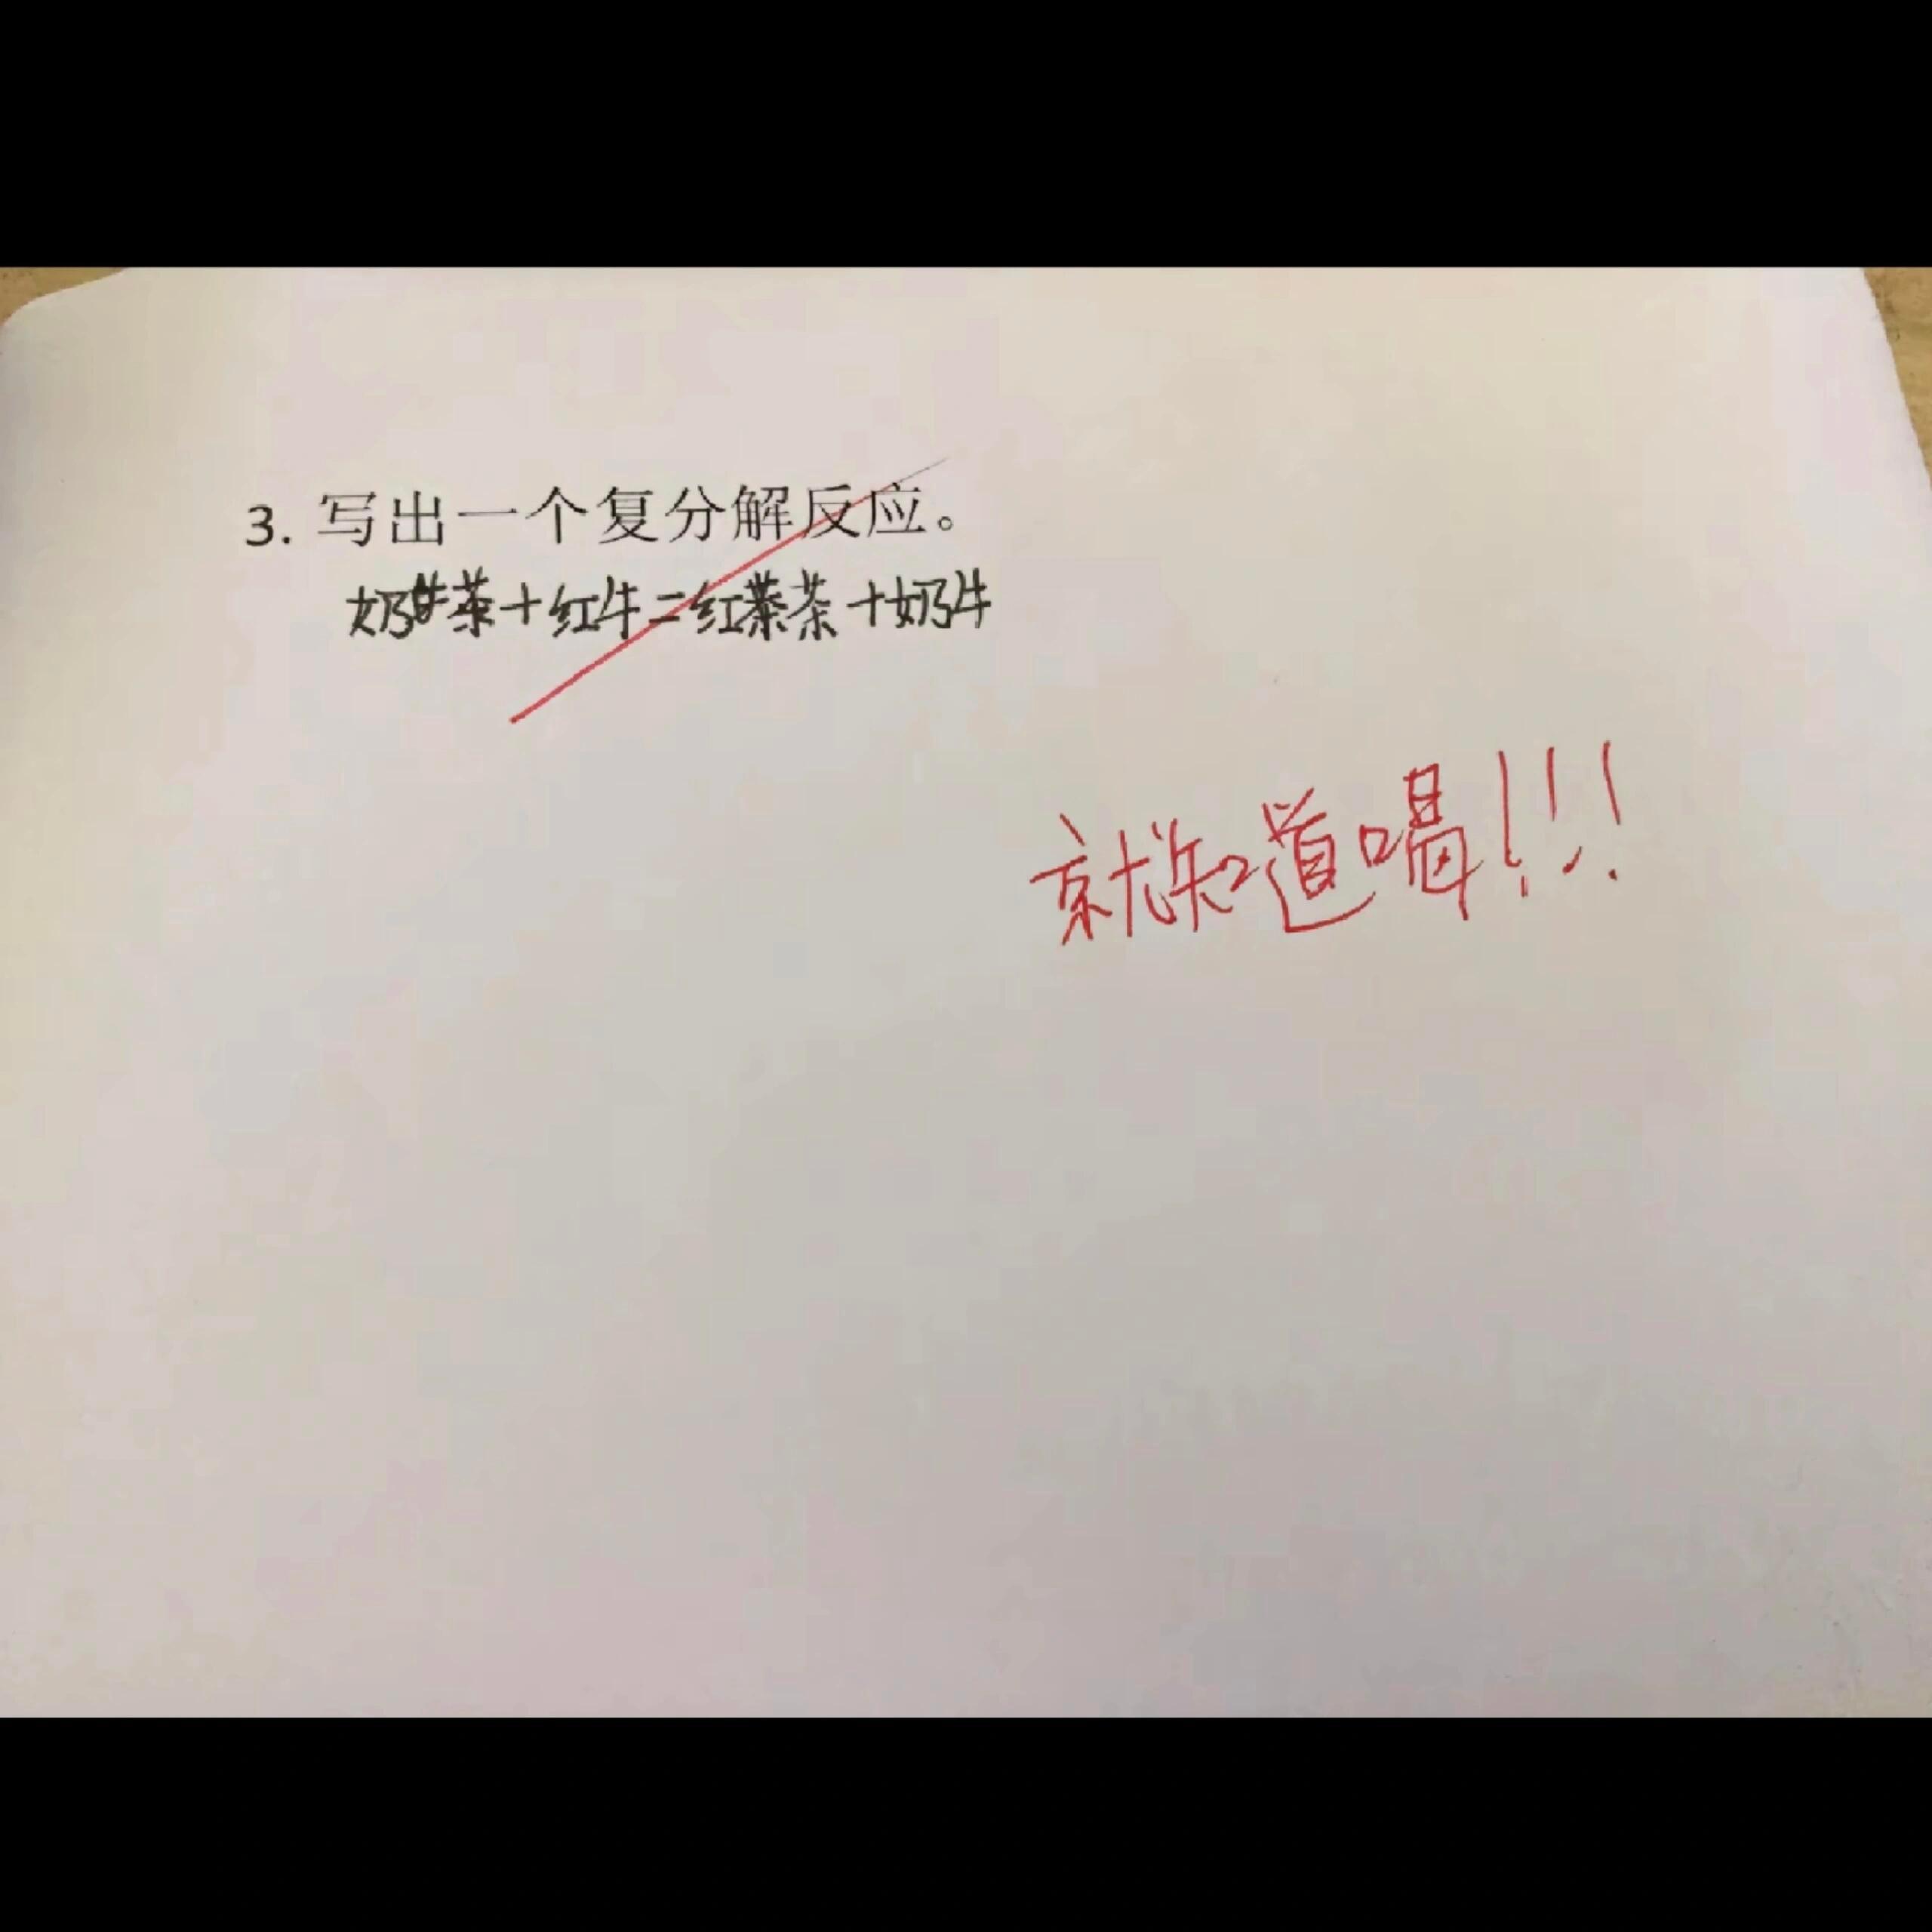 3. 写出一个复分解反应。
奶茶+红牛=红茶+奶牛
就知道喝!!!